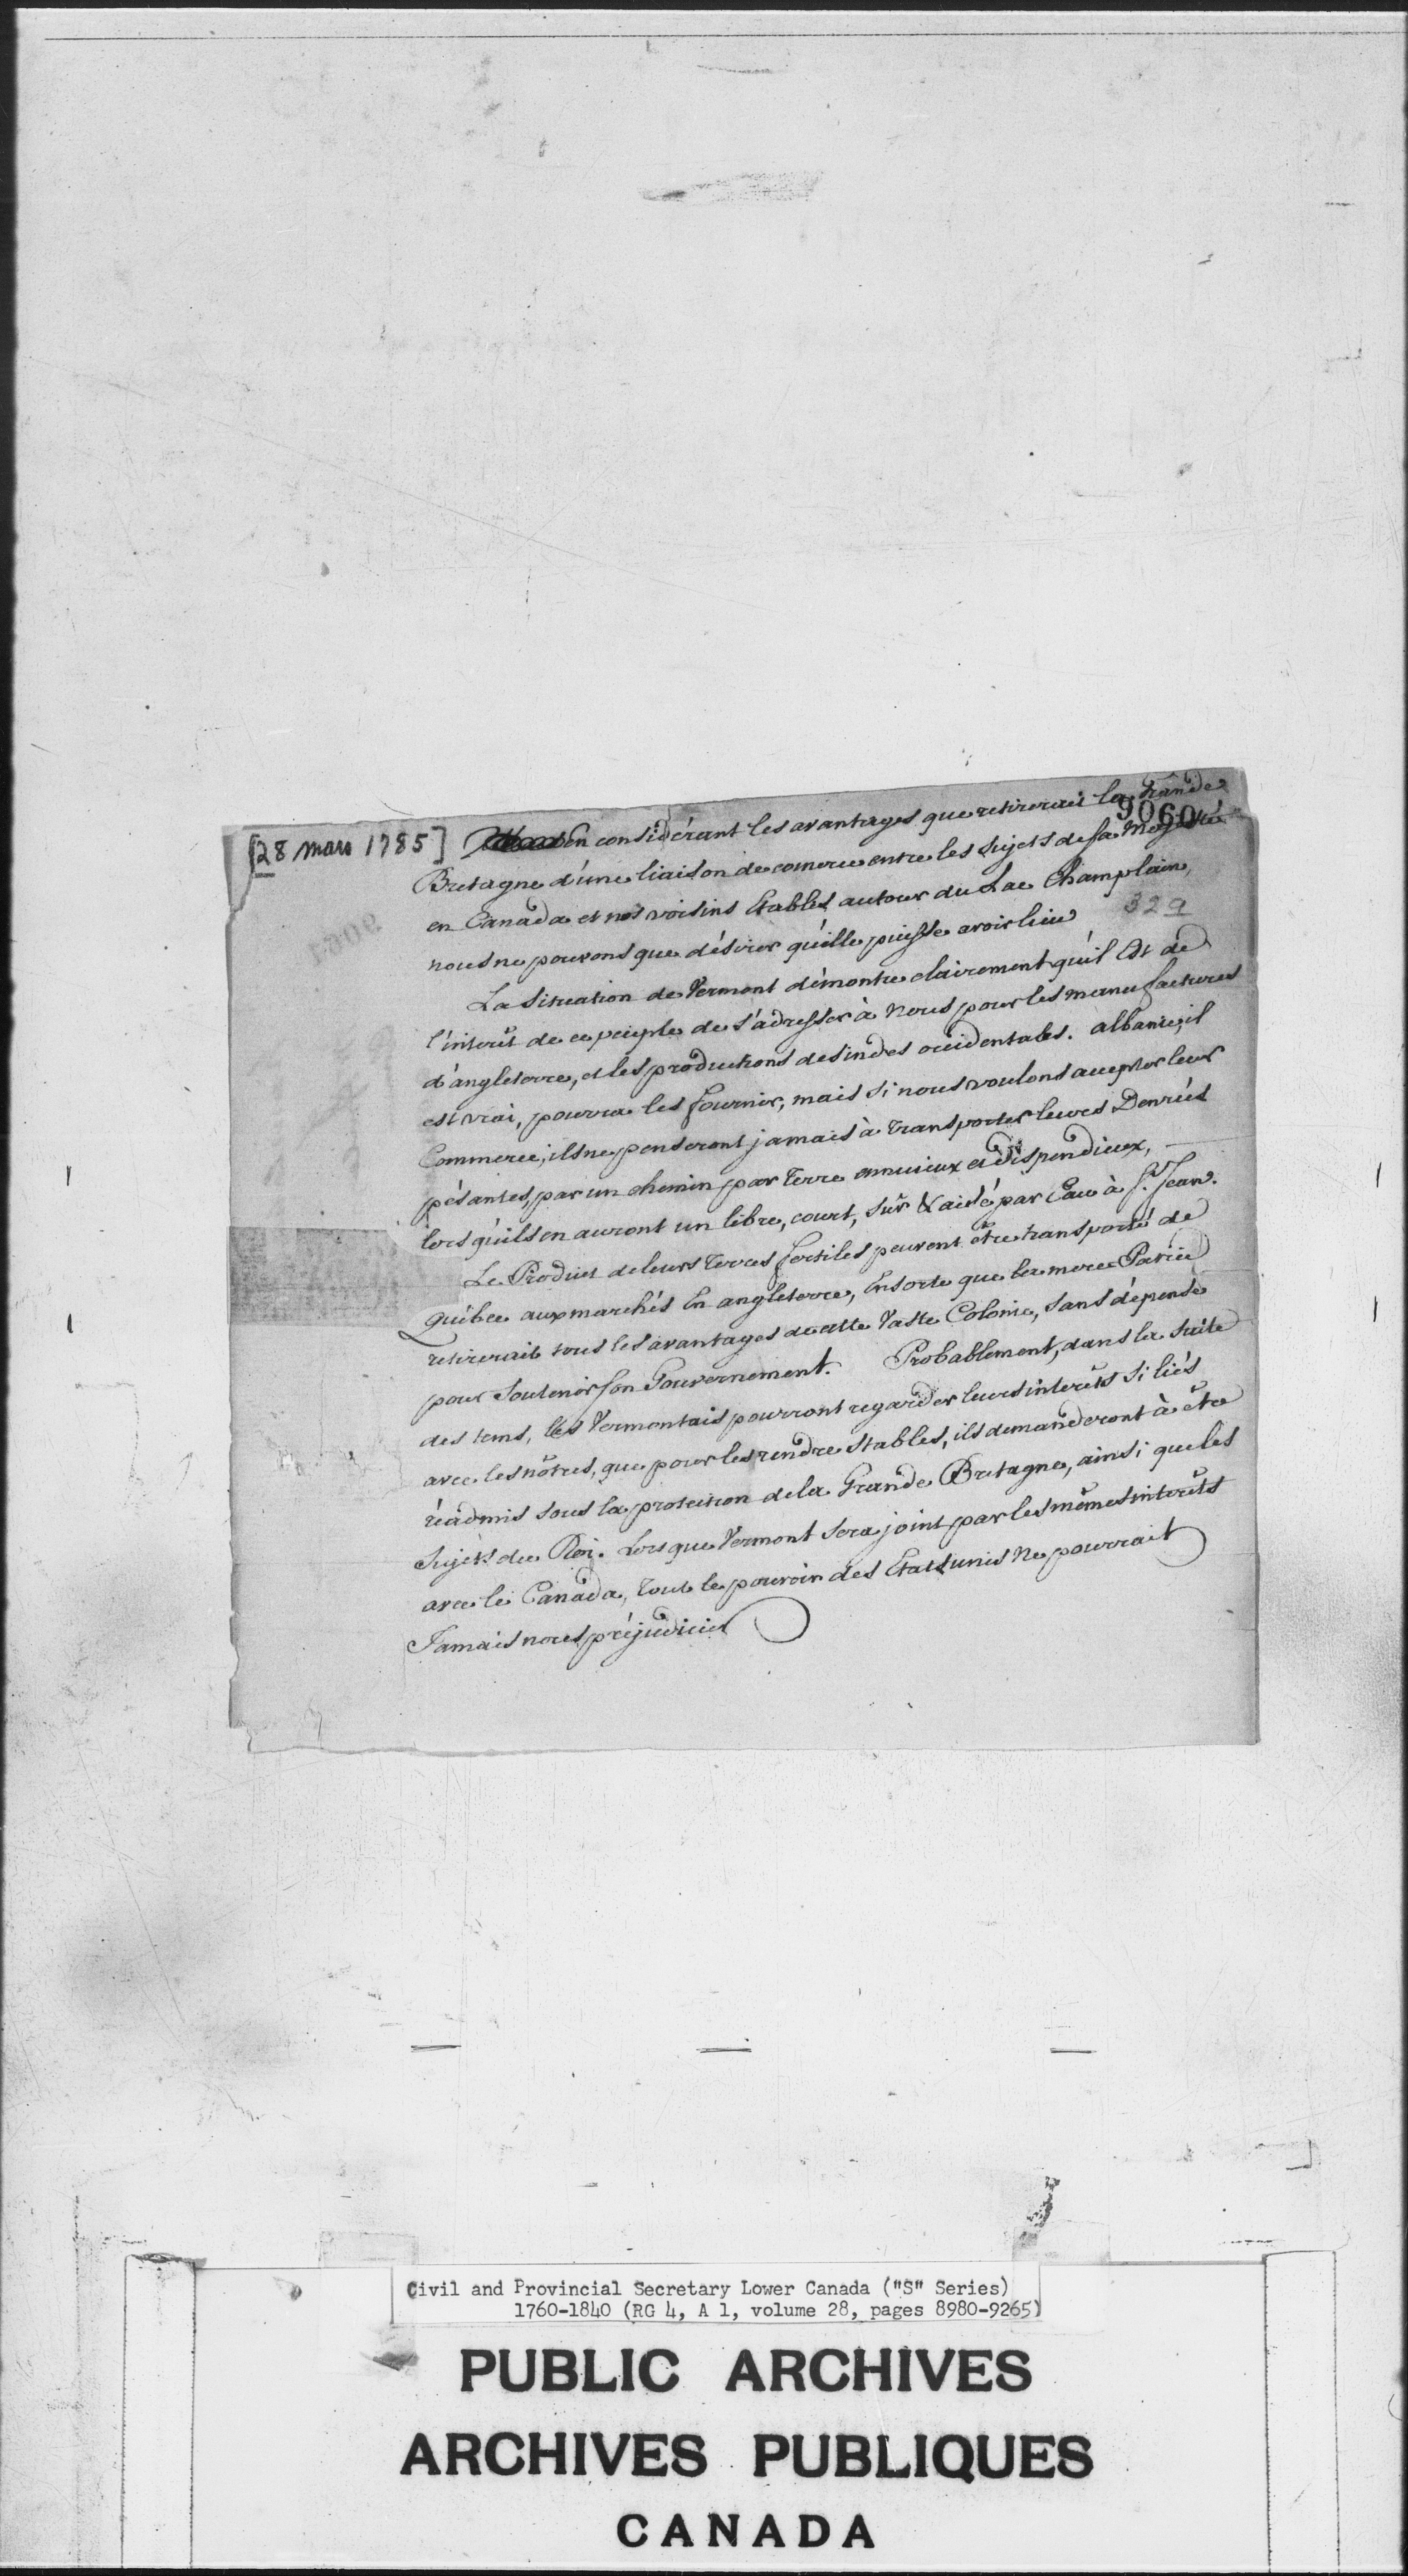 [28 mars 1785]
9060
en considérant les avantages que retirerait la Grande
Bretagne d'une liaison de comerce entre les Sujets de sa Majesté
en Canada et nos voisins Etablis autour du Lac Champlain,
nous ne pouvons que désirer qu'elle puisse avoir lieu
329
La Situation de Vermont démontre clairement qu'il Est de
l'interêt de ce peuple de s'adresser à Nous pour les manufactures
d'angleterre, et les productions des indes occidentales. albanie, il
est vrai, pourra les fournir, mais si nous voulons accepter leur
Commerce, ils ne penseront jamais à transporter leurs Denrées
pésantes, par un chemin par terre ennuieux et dispendieux,
lors qu'ils en auront un libre, court, sûr & aisé par Eau à St. Jean.
Le Produit de leurs terres fertiles peuvent être transporté de
Québec aux marchés En angleterre, Ensorte que la mere Patrie
retirerait tous les avantages de cette Vaste Colonie, sans dépense
pour Soutenir son Gouvernement. Probablement, dans la suite
des tems, les Vermontais pourront regarder leurs interêts si liés
avec les nôtres, que pour les rendre stables, ils demanderont à être
réadmis sous la protection de la Grande Bretagne, ainsi que les
Sujets du Roi. Lors que Vermont sera joint par les mêmes interêts
avec le Canada, tout le pouvoir des Etats unis ne pourrait
Jamais nous préjudicier
Civil and Provincial Secretary Lower Canada ("S" Series)
1760-1840 (RG 4, A 1, volume 28, pages 8980-9265)
PUBLIC ARCHIVES
ARCHIVES PUBLIQUES
CANADA